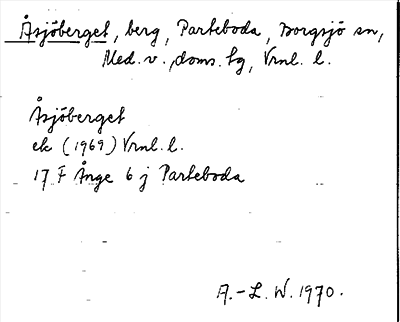 Åsjöberget, berg, Parteboda, Borgsjö sn,
Med. v. doms. tg, Vrnl. l.
Åsjöberget
ek (1969) Vrnl. l.
17 F Ånge 6 j Parteboda
A.-L. W. 1970.